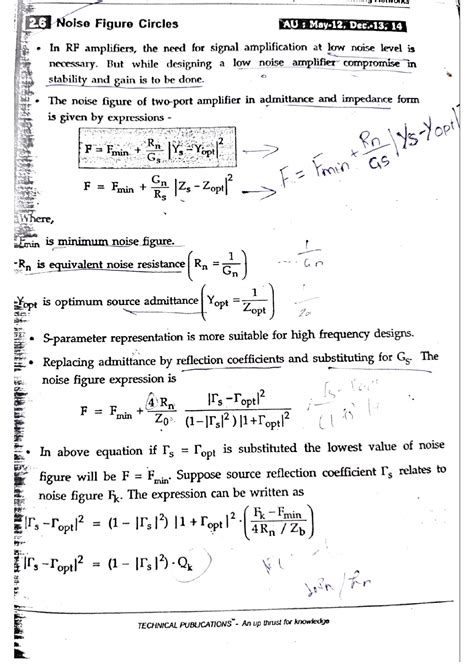 2.6 Noise Figure Circles AU : May-12, Dec.-13, 14
• In RF amplifiers, the need for signal amplification at low noise level is
necessary. But while designing a low noise amplifier compromise in
stability and gain is to be done.
• The noise figure of two-port amplifier in admittance and impedance form
is given by expressions -
F = Fmin + Rn/Gs |Ys – Yopt|²
F = Fmin + Rn/Gs |Ys – Yopt|
F = Fmin + Gn/Rs |Zs – Zopt|²
Where,
Fmin is minimum noise figure.
Rn is equivalent noise resistance (Rn = 1/Gn)
1/Gn
Yopt is optimum source admittance (Yopt = 1/Zopt)
• S-parameter representation is more suitable for high frequency designs.
• Replacing admittance by reflection coefficients and substituting for Gs. The
noise figure expression is
F = Fmin + 4 Rn/Z0 |Γs – Γopt|²/(1–|Γs|²) |1+Γopt|²
• In above equation if Γs = Γopt is substituted the lowest value of noise
figure will be F = Fmin. Suppose source reflection coefficient Γs relates to
noise figure Fk. The expression can be written as
|Γs – Γopt|² = (1 – |Γs|²) |1 + Γopt|² · (Fk – Fmin / 4Rn / Zb)
|Γs – Γopt|² = (1 – |Γs|²) · Qk
TECHNICAL PUBLICATIONS™ - An up thrust for knowledge